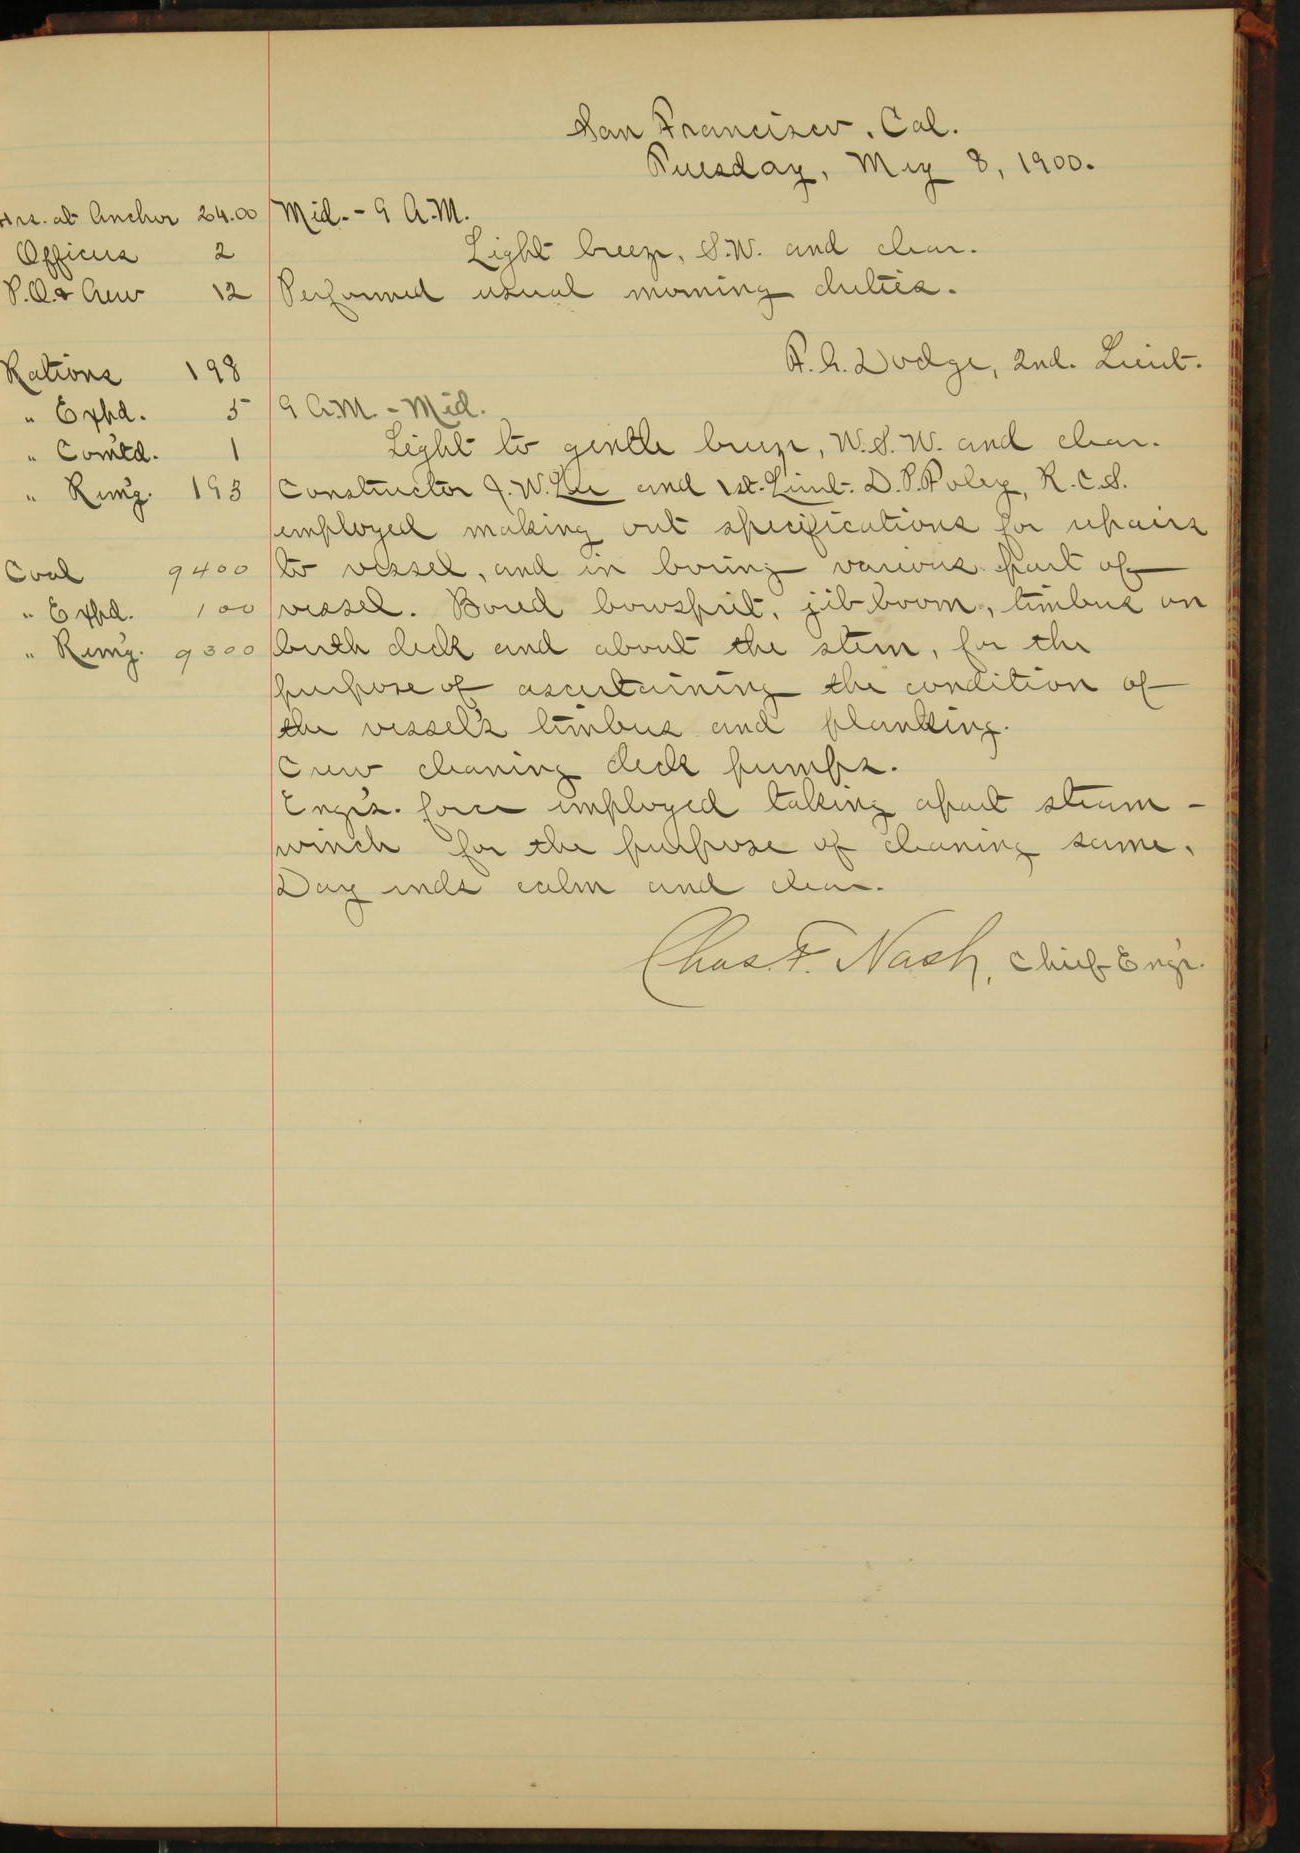 San Francisco, Cal.
Tuesday, May 8, 1900.
Hrs. at Anchor 24.00
Officers 2
P.O. & Crew 12
Rations 198
" Expd. 5
" Com'td. 1
" Rem'g. 193
Coal 9400
" Expd. 100
" Rem'g. 9300
Mid. - 9 A.M.
Light breeze, S.W. and clear.
Performed usual morning duties.
F. G. Dodge, 2nd. Lieut.
9 A.M. - Mid.
Light to gentle breeze, W.S.W. and clear.
Constructor J.W. Lee and 1st. Lieut. D.P. Foley, R.C.S.
employed making out specifications for repairs
to vessel, and in boring various part of
vessel. Bored bowsprit, jib-boom, timbers on
berth deck and about the stem, for the
purpose of ascertaining the condition of
the vessel's timbers and planking.
Crew cleaning deck pumps.
Engr's. force employed taking apart steam-
winch for the purpose of cleaning same.
Day ends calm and clear.
Chas. F. Nash, Chief Eng'r.